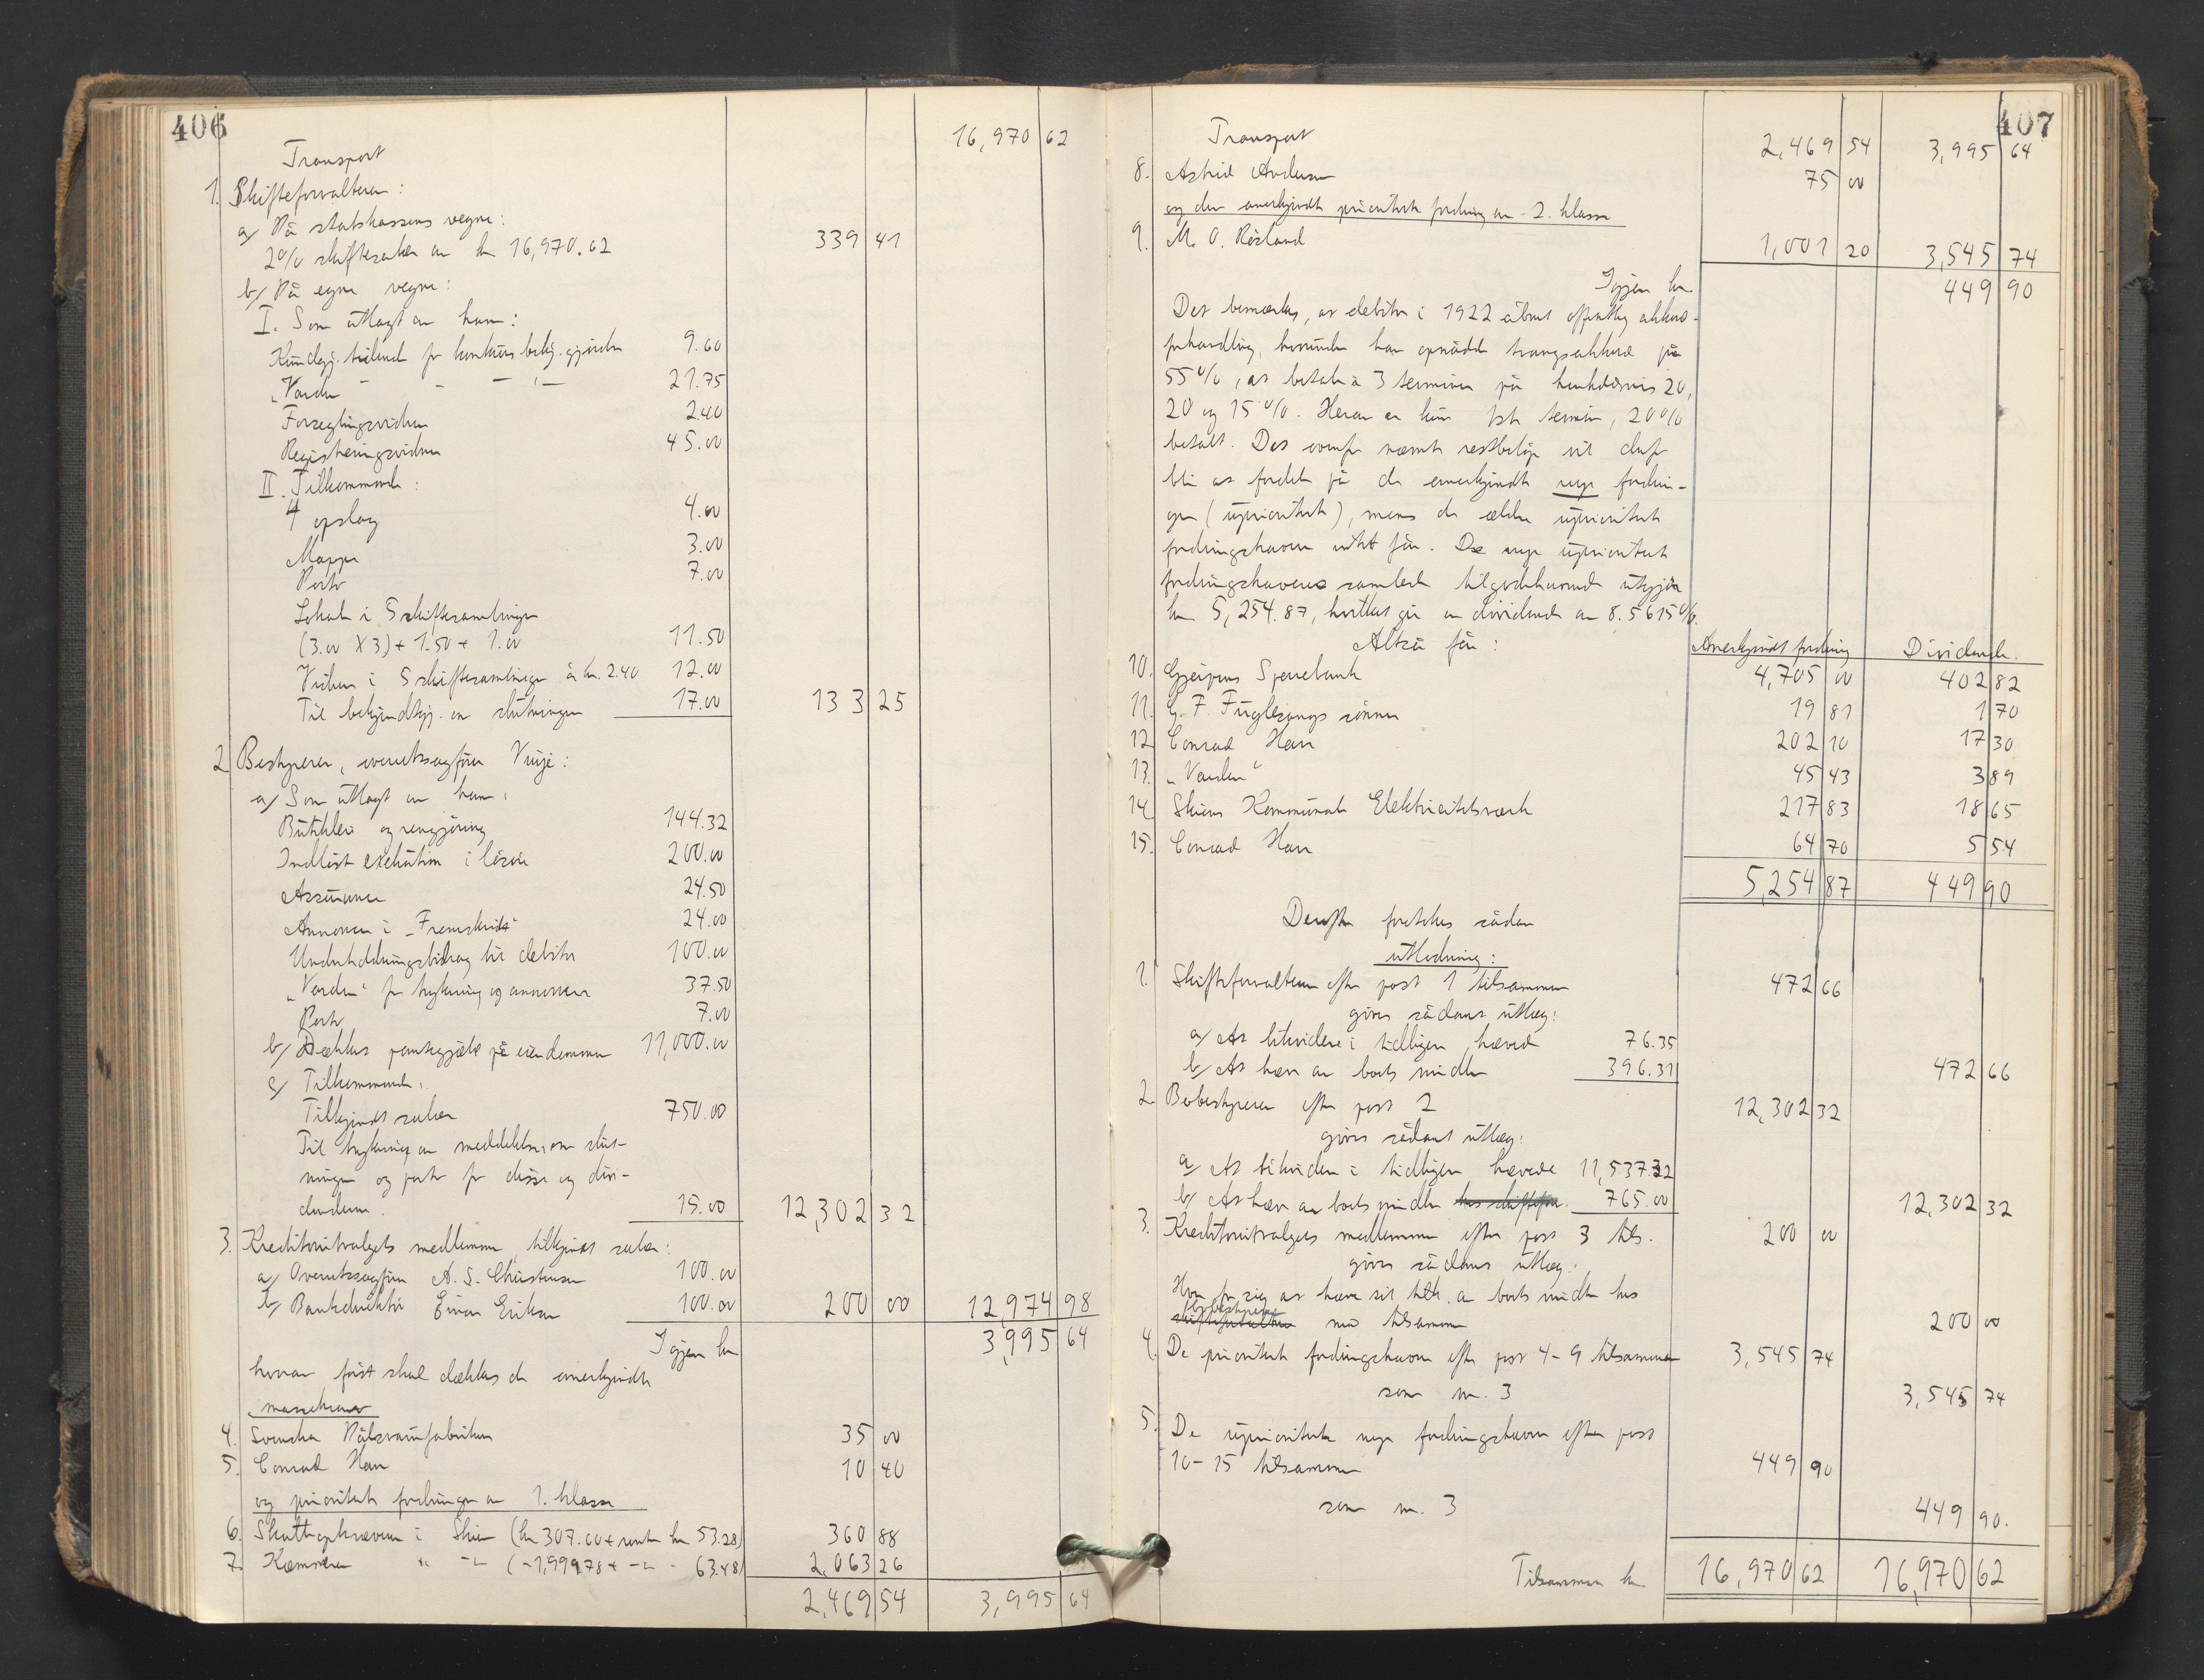 406
Transport 16,970 62
1. Skifteforvalteren:
a/ På statskassens vegne:
2% skiftesalær av kr 16,970.62 339 41
b/ På egne vegne:
I. Som utlagt av ham:
Kundgj. tidende for konkurs bekj. gjørelse 9.60
"Varden" - - " - 21.75
Forseglingsvidner 2.40
Registreringsvidner 45.00
II. Tilkommende:
4 opslag 4.00
Mappe 3.00
Porto 7.00
Lokale i 5 skiftesamlinger
(3.00 X 3) + 1.50 + 1.00 11.50
Vidner i 5 skiftesamlinger à kr. 2.40 12.00
Til bekjendtgj. av slutningen 17.00 133 25
2. Bestyreren, overretssagfører Vinje:
a/ Som utlagt av ham:
Bütikleie og rengjøring 144.32
Indløst exekution i løsøre 200.00
Assurance 24.50
Annoncer i "Fremskridt" 24.00
Underholdningsbidrag til debitor 100.00
"Varden" for trykning og annoncer 37.50
Porto 7.00
b/ Dækket pantegjæld på eiendommen 11,000.00
c/ Tilkommende:
Tilkjendt salær 750.00
Til trykning av meddelelser om slut-
ningen og porto for disse og divi-
denderne. 15.00 12,302 32
3. Kreditorutvalgets medlemmer, tilkjendt salær:
a/ Overretssagfører A. S. Christensen 100.00
b/ Bankdirektør Einar Eriksen 100.00 200 00 12,974 98
Igjen kr 3,995 64
hvorav først skal dækkes de anerkjendte
massekrav
4. Svenska Pälsvarufabriken 35 00
5. Conrad Herr 10 40
og prioriterte fordringer av 1. klasse
6. Skatteopkræveren i Skien (kr 307.60 + renter kr 53.28) 360 88
7. Kæmneren " -"- (-1,999.78 + -"- - 63.48) 2,063 26
2,469 54 3,995 64
407
Transport 2,469 54 3,995 64
8. Astrid Andersen 75 00
og den anerkjendte prioriterte fordring av 2. klasse
9. M. O. Røsland 1,001 20 3,545 74
Igjen kr 449 90
Det bemærkes, at debitor i 1922 åbnet offentlig akkord-
forhandling, hvorunder han opnådde tvangsakkord på
55%, at betale i 3 terminer på henholdsvis 20,
20 og 15%. Herav er kun 1ste termin, 20%
betalt. Det ovenfor nævnte restbeløp vil derfor
bli at fordele på de anerkjendte nye fordrin-
ger (uprioriterte), mens de ældre uprioriterte
fordringshavere intet får. De nye uprioriterte
fordringshaveres samlede tilgodehavende utgjør
kr 5,254.87, hvilket gir en dividende av 8.5615%.
Altså får: Anerkjendt fordring Dividende.
10. Gjerpens Sparebank 4,705 00 402 82
11. G. F. Fuglesangs sønner 19 81 1 70
12. Conrad Herr 202 10 17 30
13. "Varden" 45 43 3 89
14. Skiens Kommunale Elektricitetsverk 217 83 18 65
15. Conrad Herr 64 70 5 54
5,254 87 449 90
Derefter foretokes sådan
utlodning:
1. Skifteforvalteren efter post 1 tilsammen 472 66
gives sådant utlæg:
a/ At likvidere i tidligere hævede 76.35
b/ At hæve av boets midler 396.31 472 66
2. Bobestyreren efter post 2 12,302 32
gives sådant utlæg:
a/ At likvidere i tidligere hævede 11,537.32
b/ At hæve av boets midler hos skiftefor. 765.00 12,302 32
3. Kreditorutvalgets medlemmer efter post 3 tils. 200 00
gives sådant utlæg:
Hver for sig at hæve sit tilk. av boets midler hos
bobestyreren
skifteforvalteren med tilsammen 200 00
4. De prioriterte fordringshavere efter post 4-9 tilsammen 3,545 74
som nr. 3 3,545 74
5. De uprioriterte nye fordringshavere efter post
10-15 tilsammen 449 90
som nr. 3 449 90.
Tilsammen kr 16,970 62 16,970 62